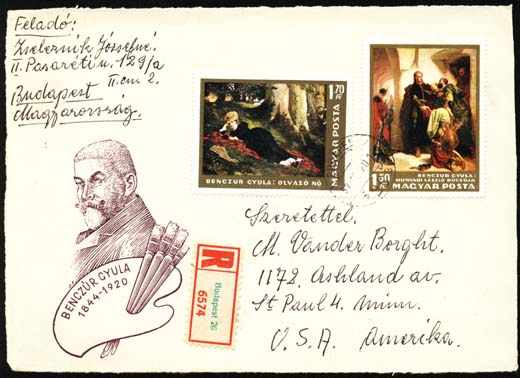 Feladó:
Zseleznik Józsefné.
II. Pasaréti u. 129/a
II. em 2.
Budapest
Magyarország.
1.70 Ft
BENCZUR GYULA: OLVASÓ NŐ
MAGYAR POSTA
BENCZUR GYULA:
HUNYADI LÁSZLÓ BÚCSÚJA
1.50 Ft
MAGYAR POSTA
BENCZÚR GYULA
1844-1920
R
Budapest 26
6574
Szeretettel.
M. Vander Borght.
1172. Ashland av.
St Paul 4. Minn.
U.S.A. Amerika.